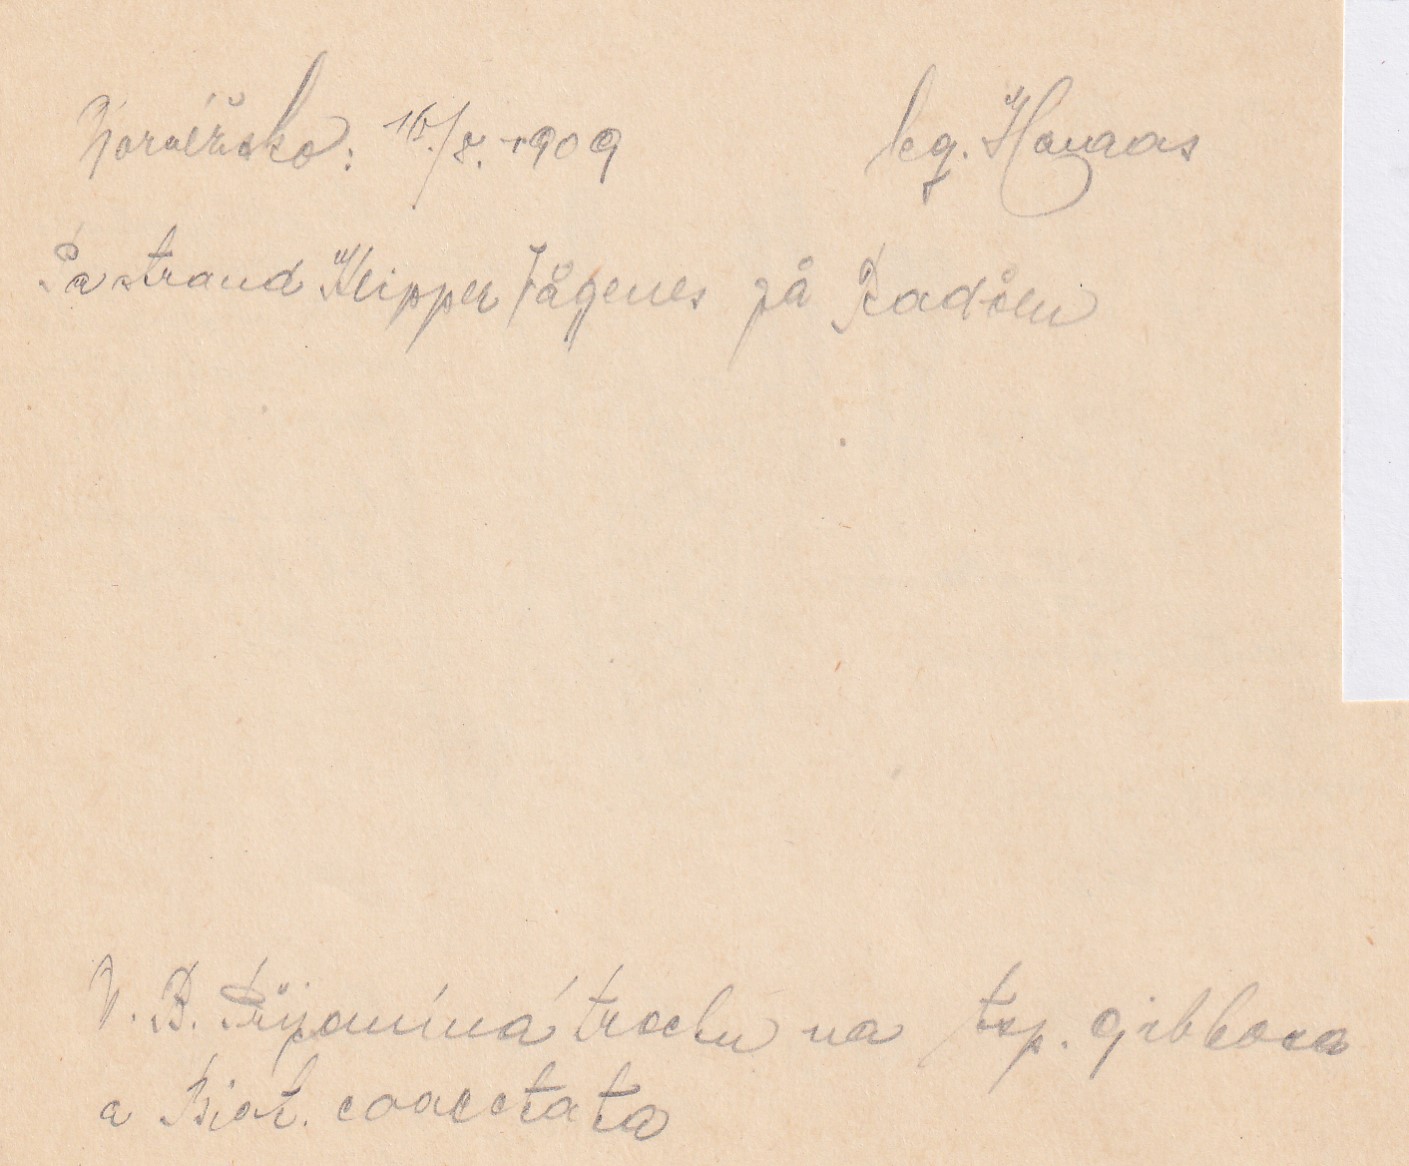 Norvéžsko: 16./8. 1909 leg. Havaas
Pa strand Klipper Vågenes på Radöen
N. B. Připomíná trochu na Asp. gibbosa
a Biat. coarctata